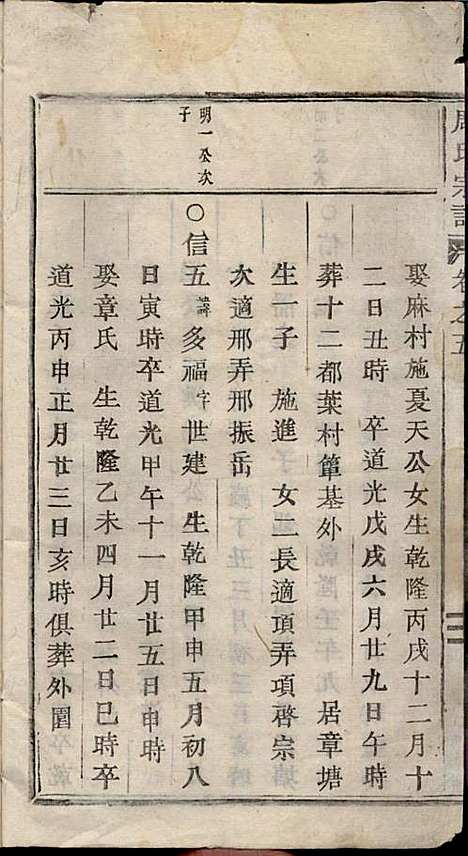 周氏宗譜
卷之五
娶麻村施夏天公女生乾隆丙戌十二月十
二日丑時 卒道光戊戌六月廿九日午時
葬十二都葉村篳基外 居章塘
生一子 施進 女二長適項弄項啓宗
次適邢弄邢振岳
明一公次
子
○信五諱多福字世建公生乾隆甲申五月初八
日寅時卒道光甲午十一月廿五日申時
娶章氏 生乾隆乙未四月廿二日巳時卒
道光丙申正月廿三日亥時俱葬外園